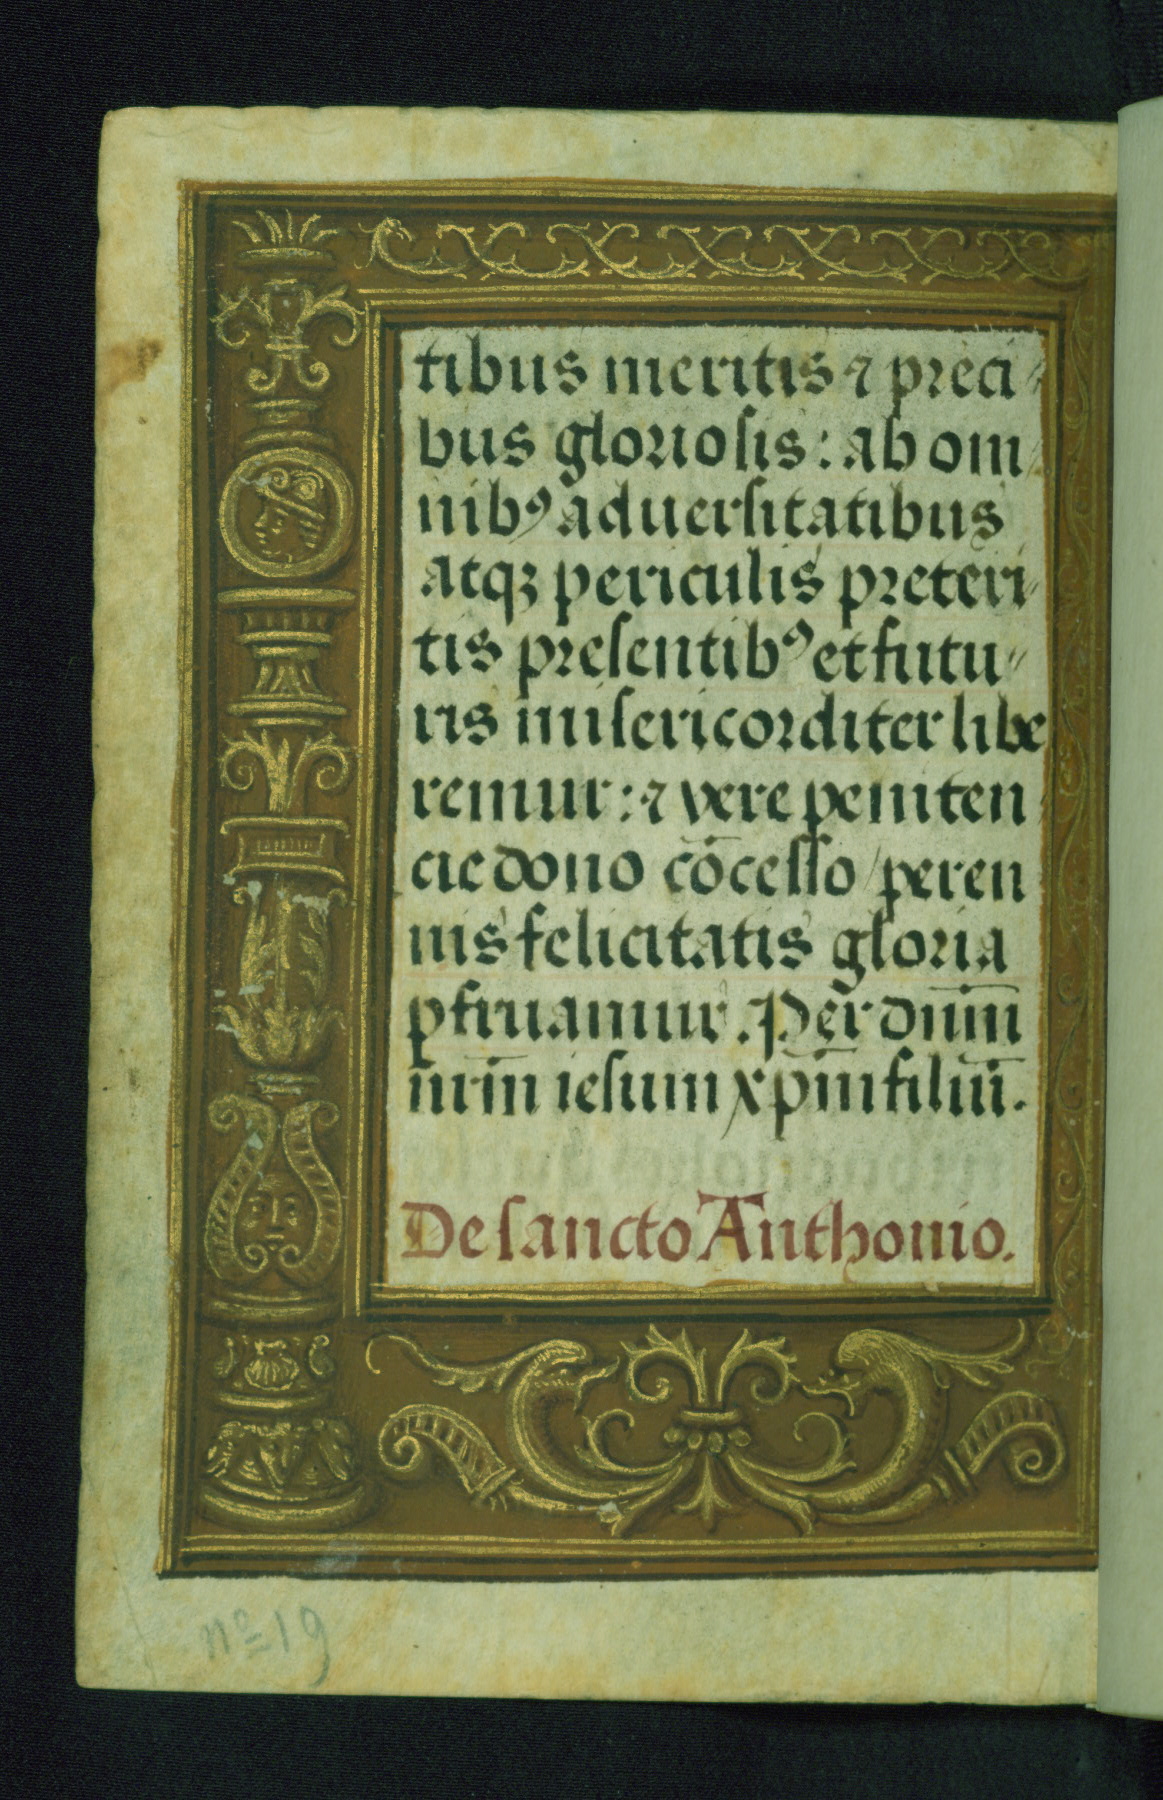 tibus meritis ⁊ preci⸗
bus gloriosis: ab om⸗
nibꝰ aduersitatibus
atqꝫ periculis preteri⸗
tis presentibꝰ et futu⸗
ris misericorditer libe
remur: ⁊ vere peniten
cie dono cōcesso / peren
nis felicitatis gloria
ꝑfruamur. Per dnm̄
nrm̄ iesum xp̄m filiū.
De sancto Anthonio.
nº 19